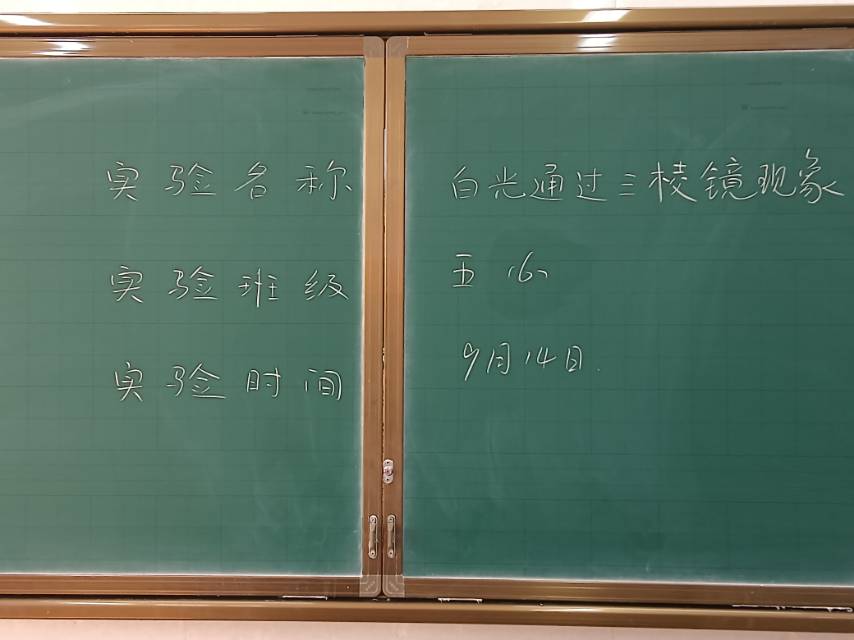 实验名称 白光通过三棱镜现象
实验班级 五(6)
实验时间 9月14日.